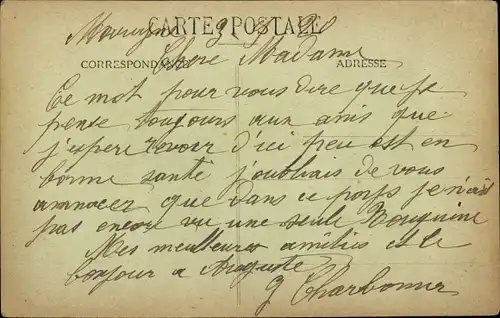 CARTE POSTALE
Chere Madame
CORRESPONDANCE ADRESSE
Ce mot pour vous dire que je
pense toujours aux amis que
j'espere revoir d'ici peu est en
bonne santé j'oubliais de vous
annoncez que dans ce pays je n'ai
pas encore vu une seule
Mes meilleures amitiés et le
bonjour a Auguste
Charbonnier